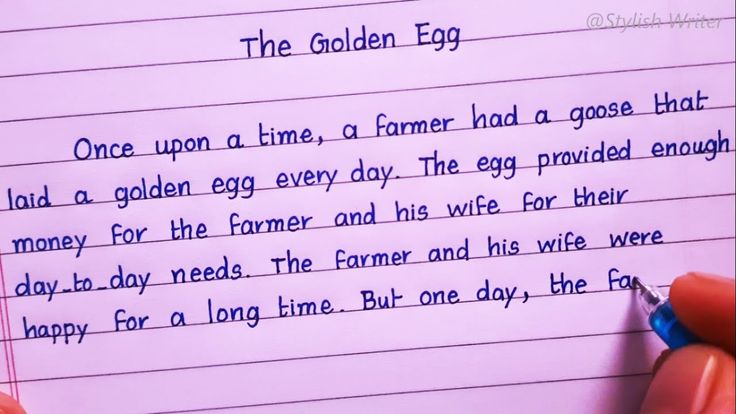 @Stylish Writer
The Golden Egg
Once upon a time, a farmer had a goose that
laid a golden egg every day. The egg provided enough
money for the farmer and his wife for their
day-to-day needs. The farmer and his wife were
happy for a long time. But one day, the fa